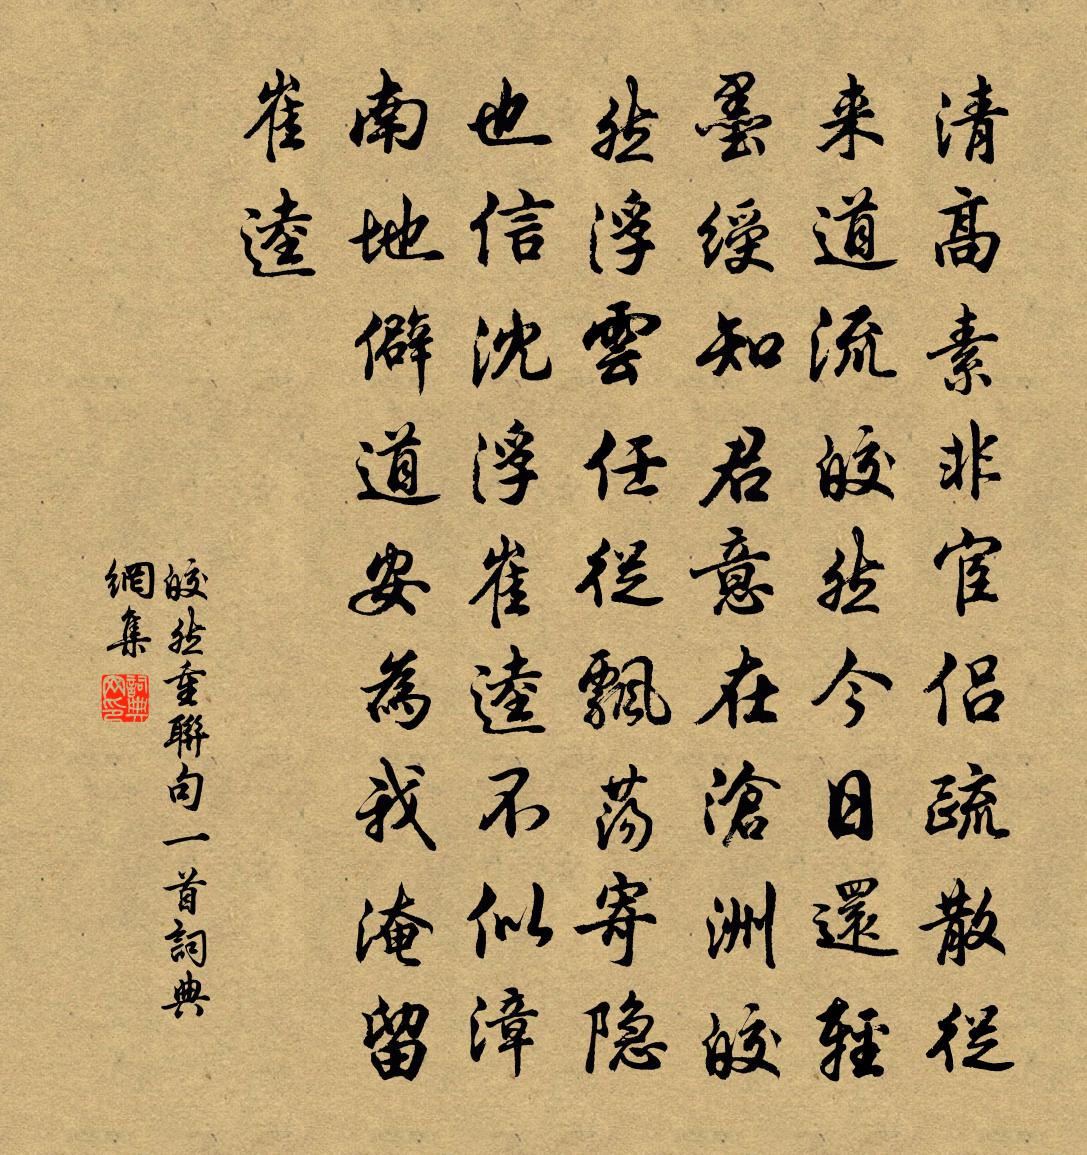 清高素非宦侣疏散從
来道流皎然今日還輕
墨綬知君意在滄洲皎
然浮雲任從飄蕩寄隐
也信沈浮崔逵不似漳
南地僻道安為我淹留
崔逵
皎然重聯句一首詞典
網集
詞典
网印